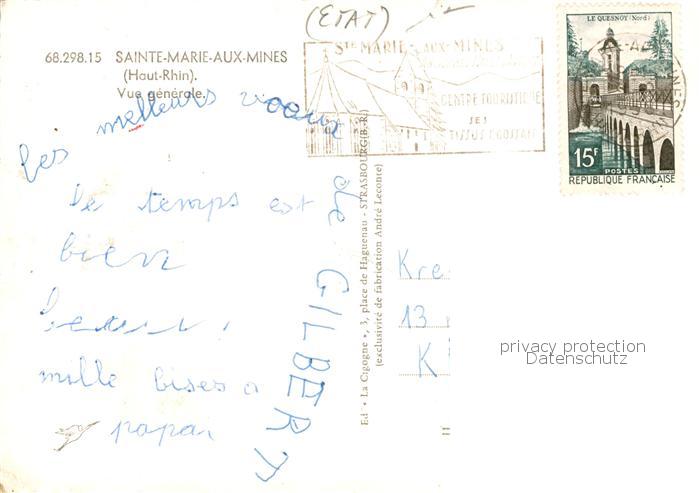 (ETAT)
68.298.15 SAINTE-MARIE-AUX-MINES
(Haut-Rhin).
Vue générale.
STE MARIE-AUX-MINES
CENTRE TOURISTIQUE
SES
TISSUS
LE QUESNOY (Nord)
15F
POSTES
REPUBLIQUE FRANÇAISE
les meilleurs voeux de GILBERT
Le temps est
bien
mille bises a
papa
Ed. « La Cigogne », 3, place de Haguenau - STRASBOURG (B.-R.)
(exclusivité de fabrication André Leconte)
Kre
13
K
privacy protection
Datenschutz